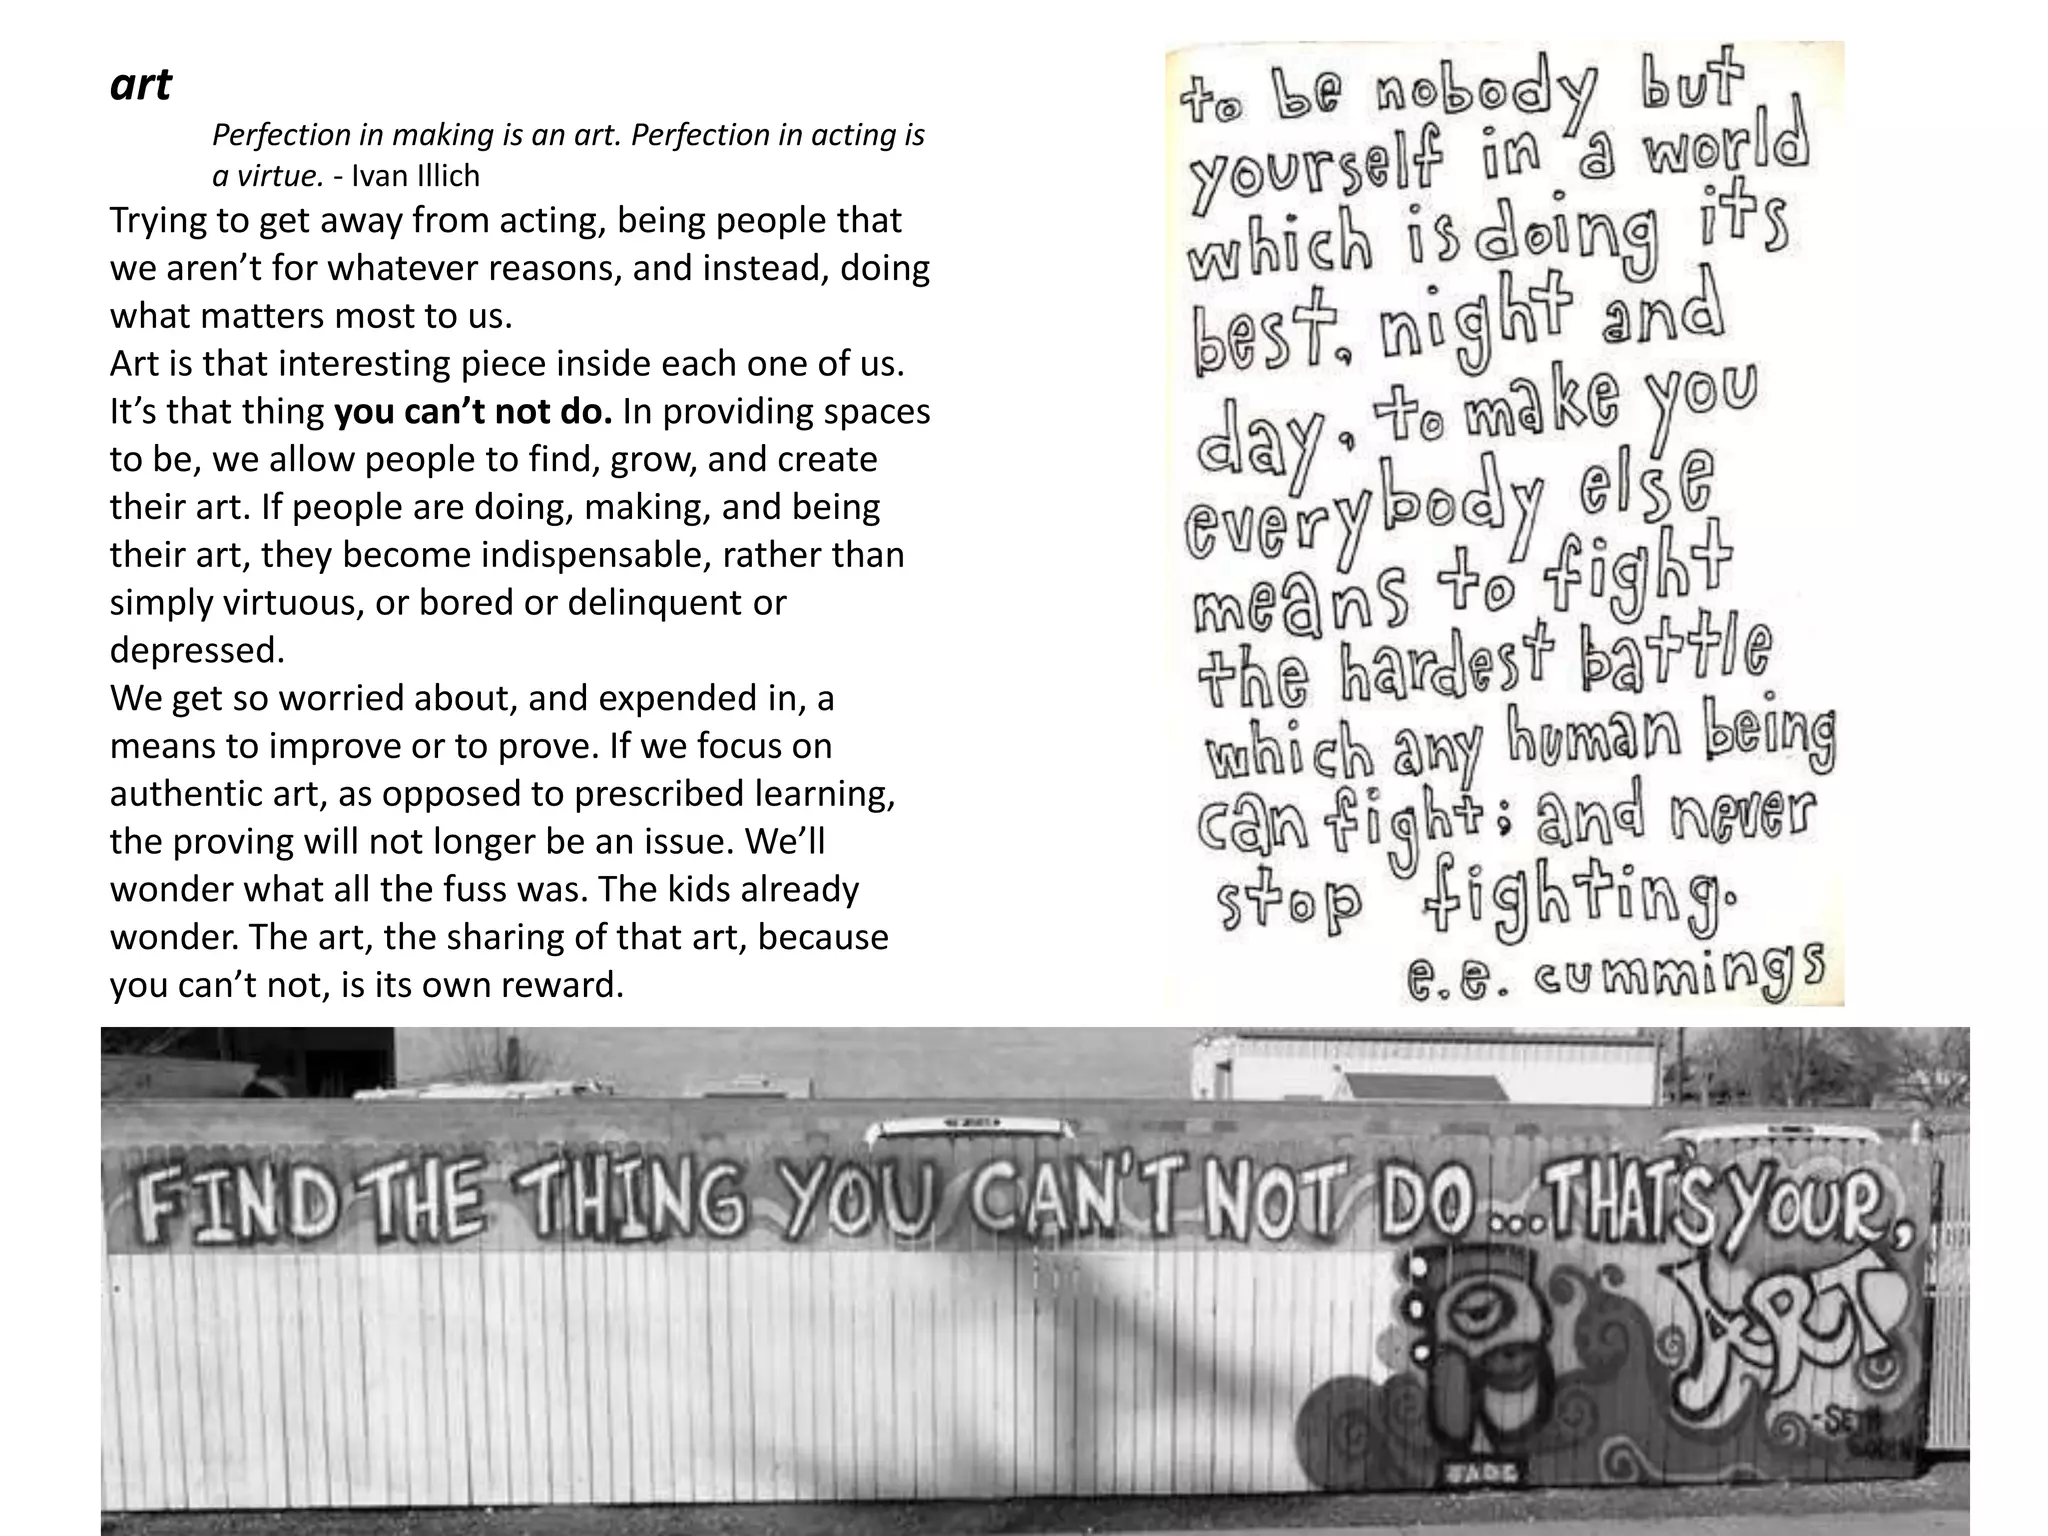 art
Perfection in making is an art. Perfection in acting is
a virtue. - Ivan Illich
Trying to get away from acting, being people that
we aren’t for whatever reasons, and instead, doing
what matters most to us.
Art is that interesting piece inside each one of us.
It’s that thing you can’t not do. In providing spaces
to be, we allow people to find, grow, and create
their art. If people are doing, making, and being
their art, they become indispensable, rather than
simply virtuous, or bored or delinquent or
depressed.
We get so worried about, and expended in, a
means to improve or to prove. If we focus on
authentic art, as opposed to prescribed learning,
the proving will not longer be an issue. We’ll
wonder what all the fuss was. The kids already
wonder. The art, the sharing of that art, because
you can’t not, is its own reward.
to be nobody but
yourself in a world
which is doing its
best, night and
day, to make you
everybody else
means to fight
the hardest battle
which any human being
can fight; and never
stop fighting.
e.e. cummings
FIND THE THING YOU CAN'T NOT DO...THAT'S YOUR,
ART
-SETH
GODIN